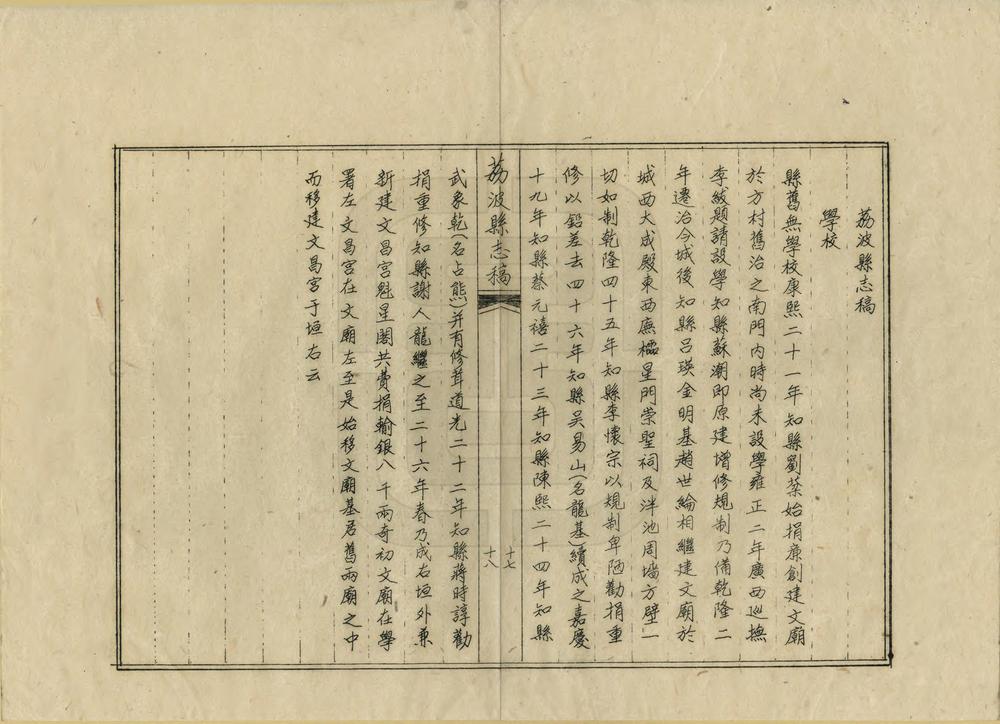 荔波縣志稿
學校
縣舊無學校康熙二十一年知縣劉棻始捐廉創建文廟
於方村舊治之南門內時尚未設學雍正二年廣西巡撫
李紱題請設學知縣蘇潮即原建增修規制乃備乾隆二
年遷治今城後知縣呂瑛金明基趙世綸相繼建文廟於
城西大成殿東西廡櫺星門崇聖祠及泮池周墻方壁一
切如制乾隆四十五年知縣李懷宗以規制卑陋勸捐重
修以鉛差去四十六年知縣吳易山(名龍基)續成之嘉慶
十九年知縣蔡元禧二十三年知縣陳熙二十四年知縣
荔波縣志稿
十七
十八
武象乾(名占熊)并有修葺道光二十二年知縣蔣時諄勸
捐重修知縣謝人龍繼之至二十六年春乃成右垣外兼
新建文昌宮魁星閣共費捐輸銀八千兩奇初文廟在學
署左文昌宮在文廟左至是始移文廟基居舊兩廟之中
而移建文昌宮于垣右云